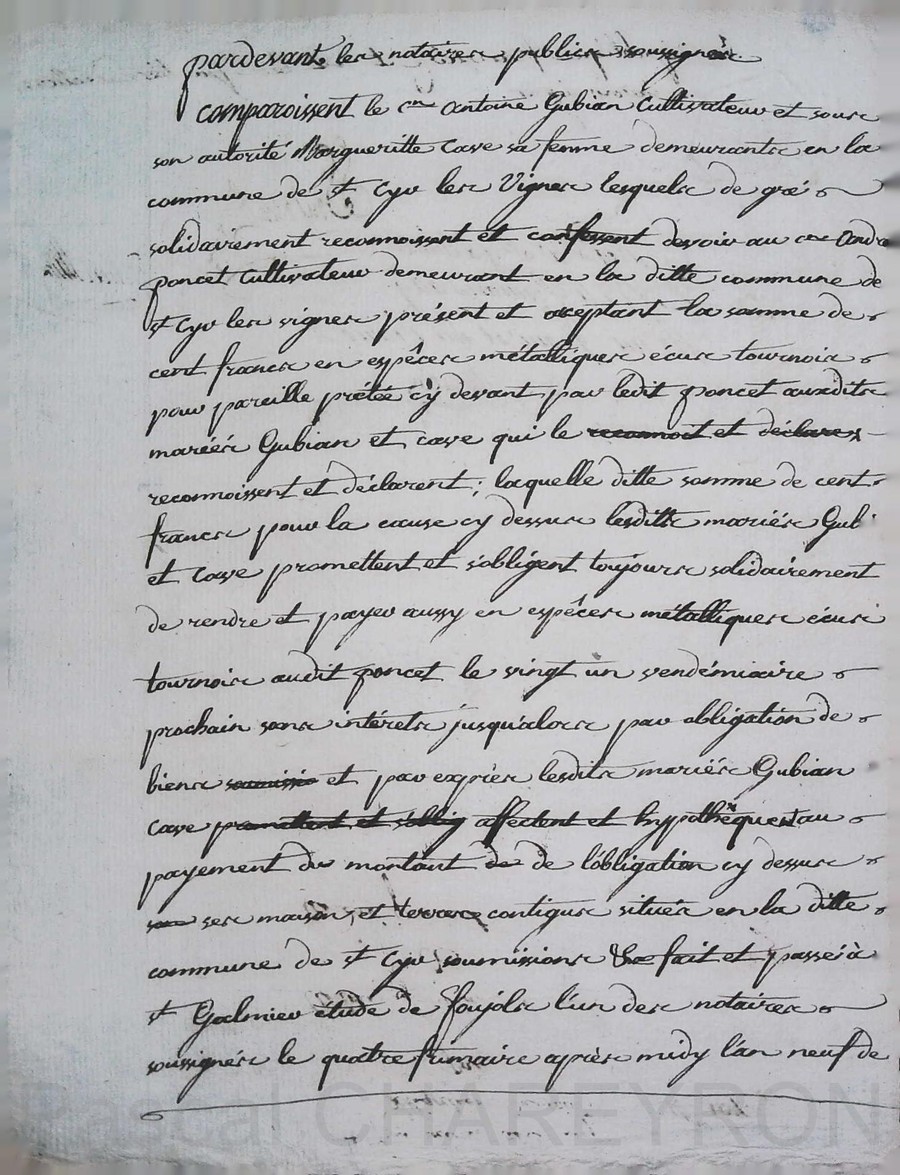 pardevant les notaires publics soussignés
comparoissent le c.en antoine Gubian Cultivateur et sous
son autorité Margueritte Cave sa femme demeurants en la
commune de s.t Cyr les Vignes lesquels de gré
solidairement reconnoissent et confessent devoir au c.en André
poncet Cultivateur demeurant en la ditte commune de
s.t Cyr les vignes présent et acceptant la somme de
cent francs en espêces métalliques écus tournois
pour pareille prétée cy devant par ledit poncet auxdits
mariés Gubian et cave qui le reconnoit et déclarex
reconnoissent et déclarent ; laquelle ditte somme de cent
francs pour la cause cy dessus lesditts mariés Gub.
et Cave promettent et s'obligent toujours solidairement
de rendre et payer aussy en espêces métalliques écus
tournois audit poncet le vingt un vendémiaire
prochain sans intérets jusqu'alors par obligation de
biens soumissio et par exprès lesdits mariés Gubian
Cave promettent et s'oblig affectent et hypothêquent au
payement du montant de de l'obligation cy dessus
ses maison, et terres contigus situés en la ditte
commune de s.t Cyr, soumissions &c fait et passé à
s.t Galmier étude de foujols l'un des notaires
soussignés le quatre frimaire après midy l'an neuf de
Pascal CHAREYRON